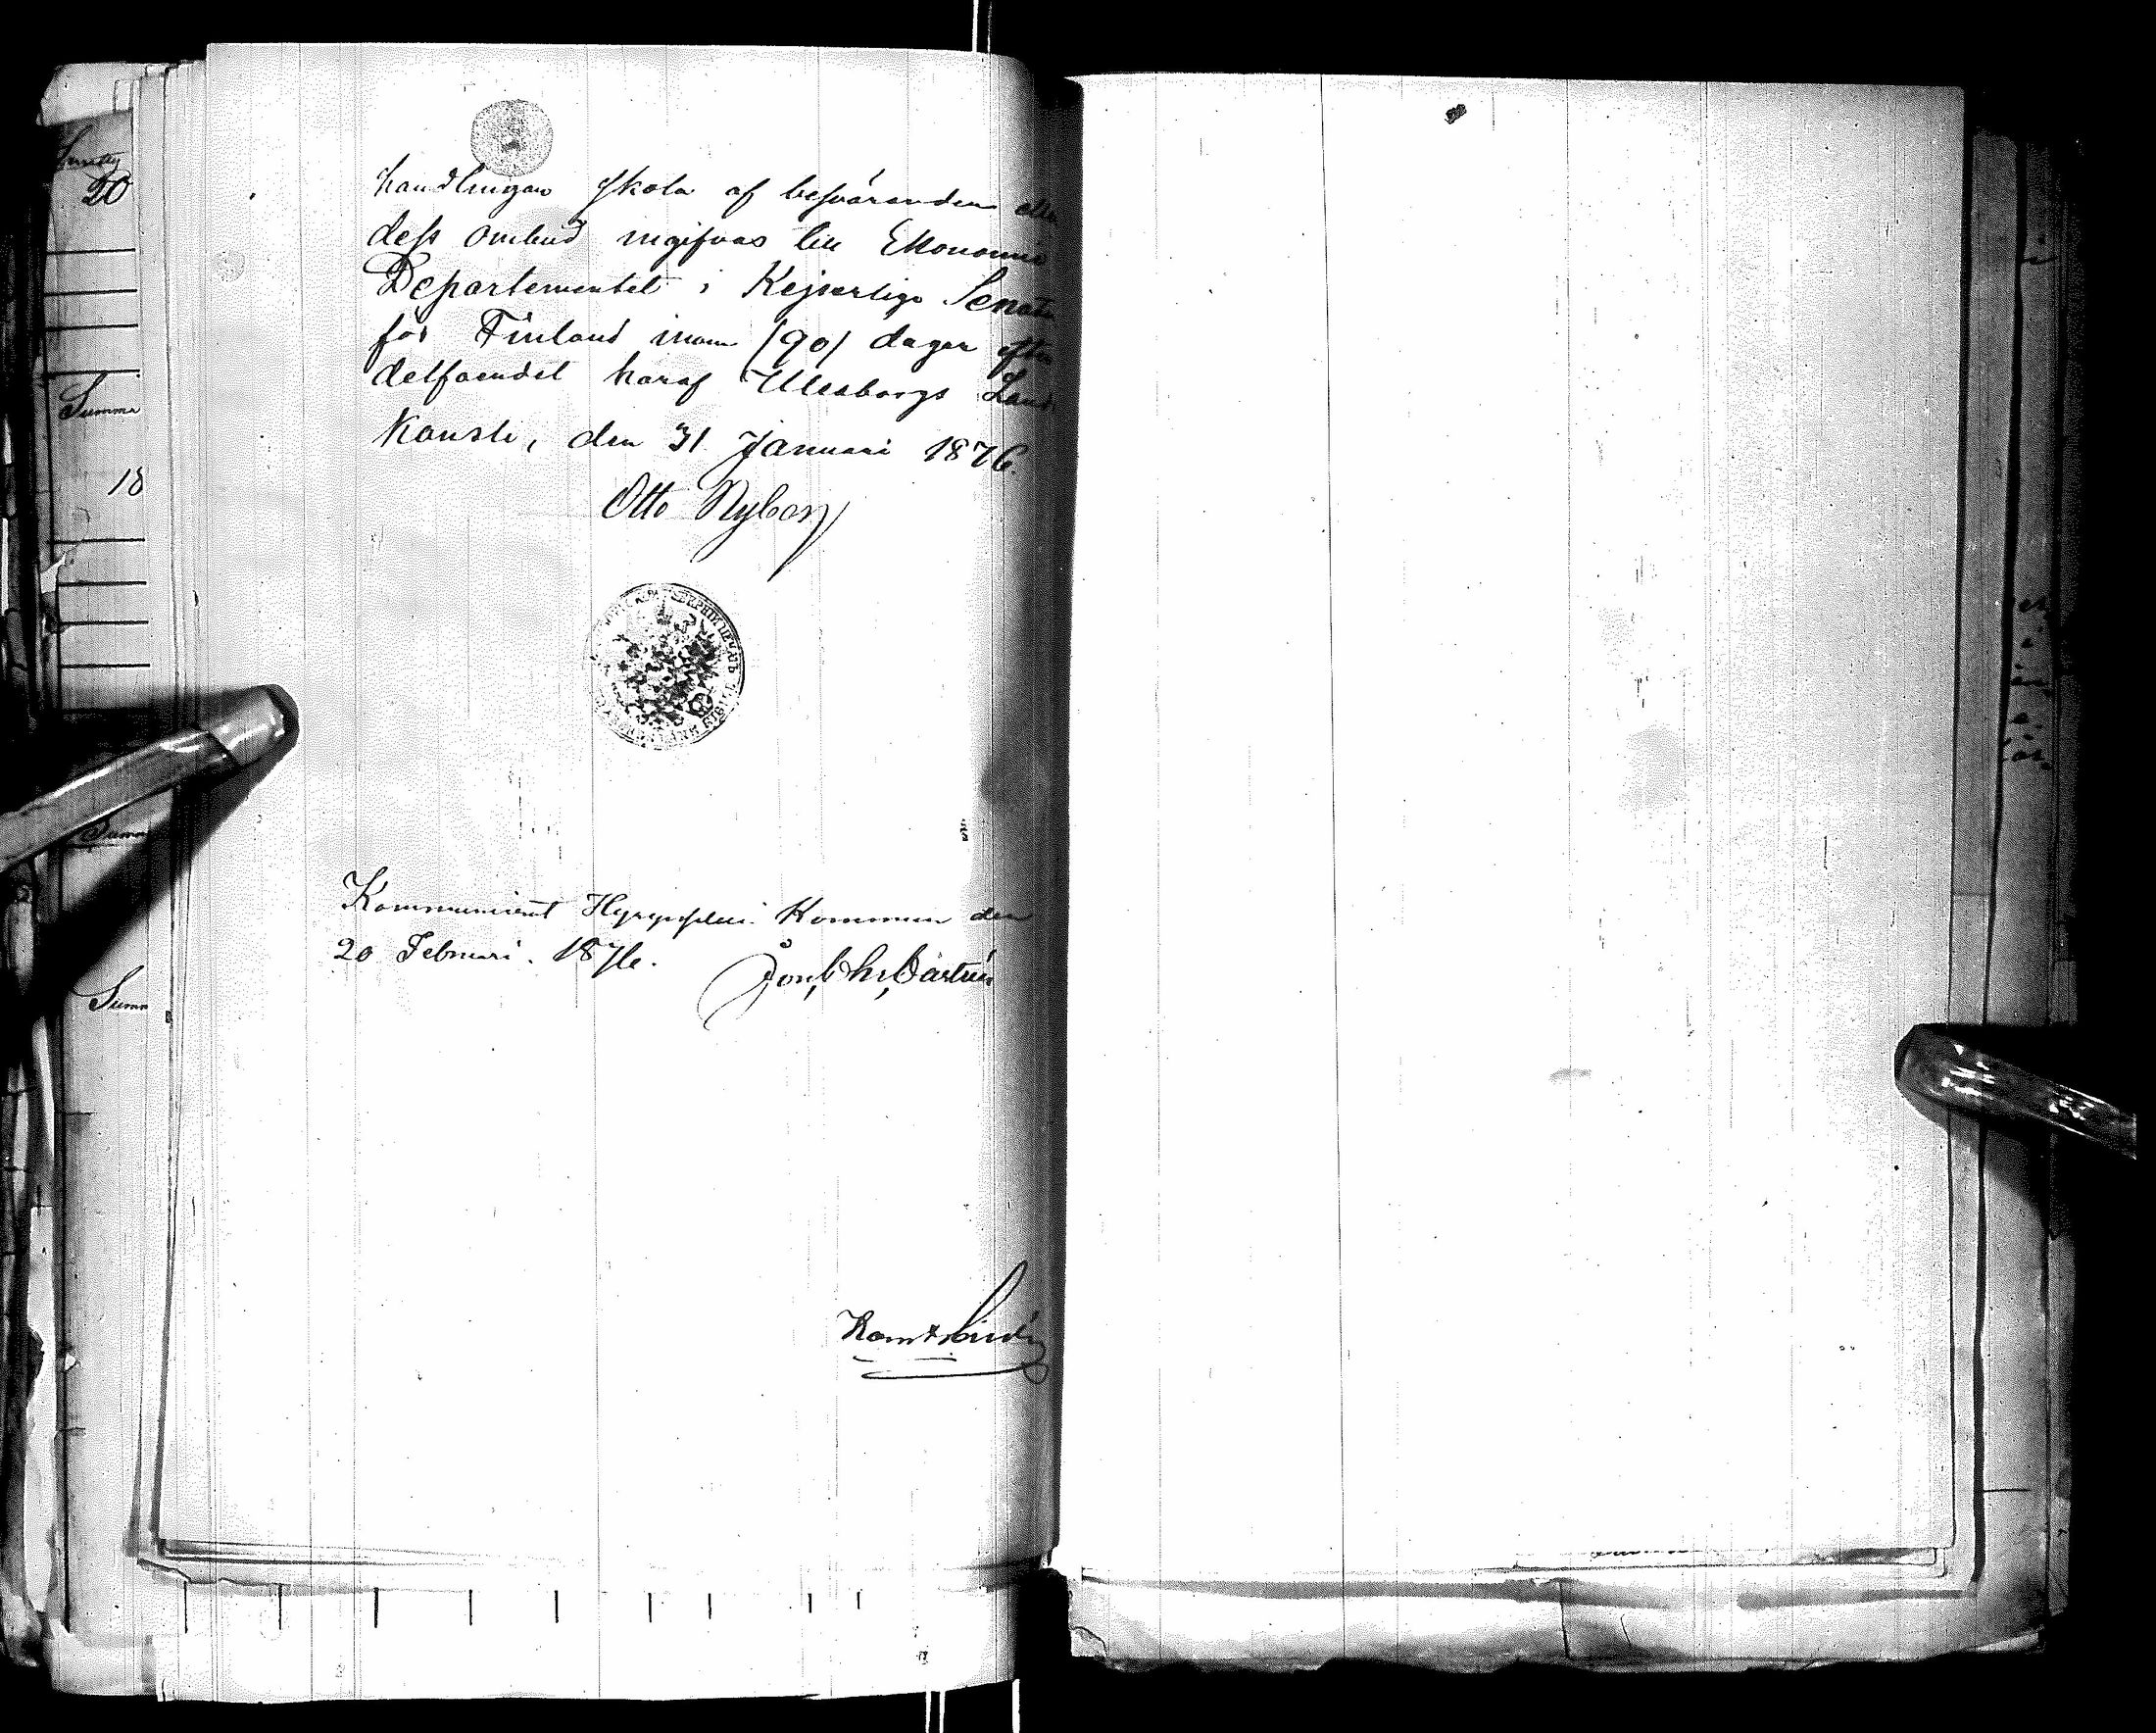 handlingar skola af besväranden eller
dess ombud ingifvas till Ekonomie
Departementet i Kejserliga Senaten
för Finland inom (90) dagar efter
delfaendet häraf Uleåborgs Lands
Kansli, den 31 Januari 1876.
Otto Nyberg
Kommunicerat Hyrynsalmi Kommun den
20 Februari. 1876.
20
Summa
18
Summ
Summ